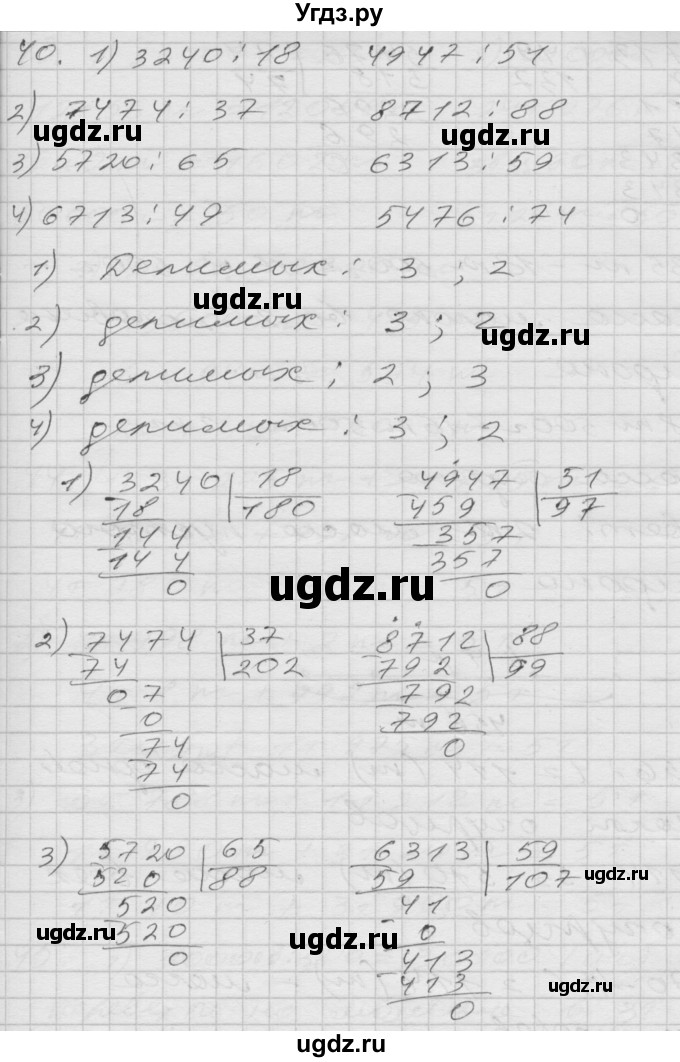 Угдз.ру
40. 1) 3240 : 18    4947 : 51
2) 7474 : 37    8712 : 88
ugdz.ru    ugdz.ru
3) 5720 : 65    6313 : 59
4) 6713 : 49    5476 : 74
1) Делимых : 3 ; 2
ugdz.ru
2) делимых : 3 ; 2
ugdz.ru
3) делимых ; 2 ; 3
4) делимых : 3 ; 2
1) 3240 | 18    4947 | 51
18 | 180    459 | 97
144    357
144    357
0    0
ugdz.ru
2) 7474 | 37    8712 | 88
74 | 202    792 | 99
07    792
0    792
74    0
74
0
3) 5720 | 65    6313 | 59
520 | 88    59 | 107
ugdz.ru
520    41
520    0
ugdz.ru    ugdz.ru
0    413
413
0
ugdz.ru